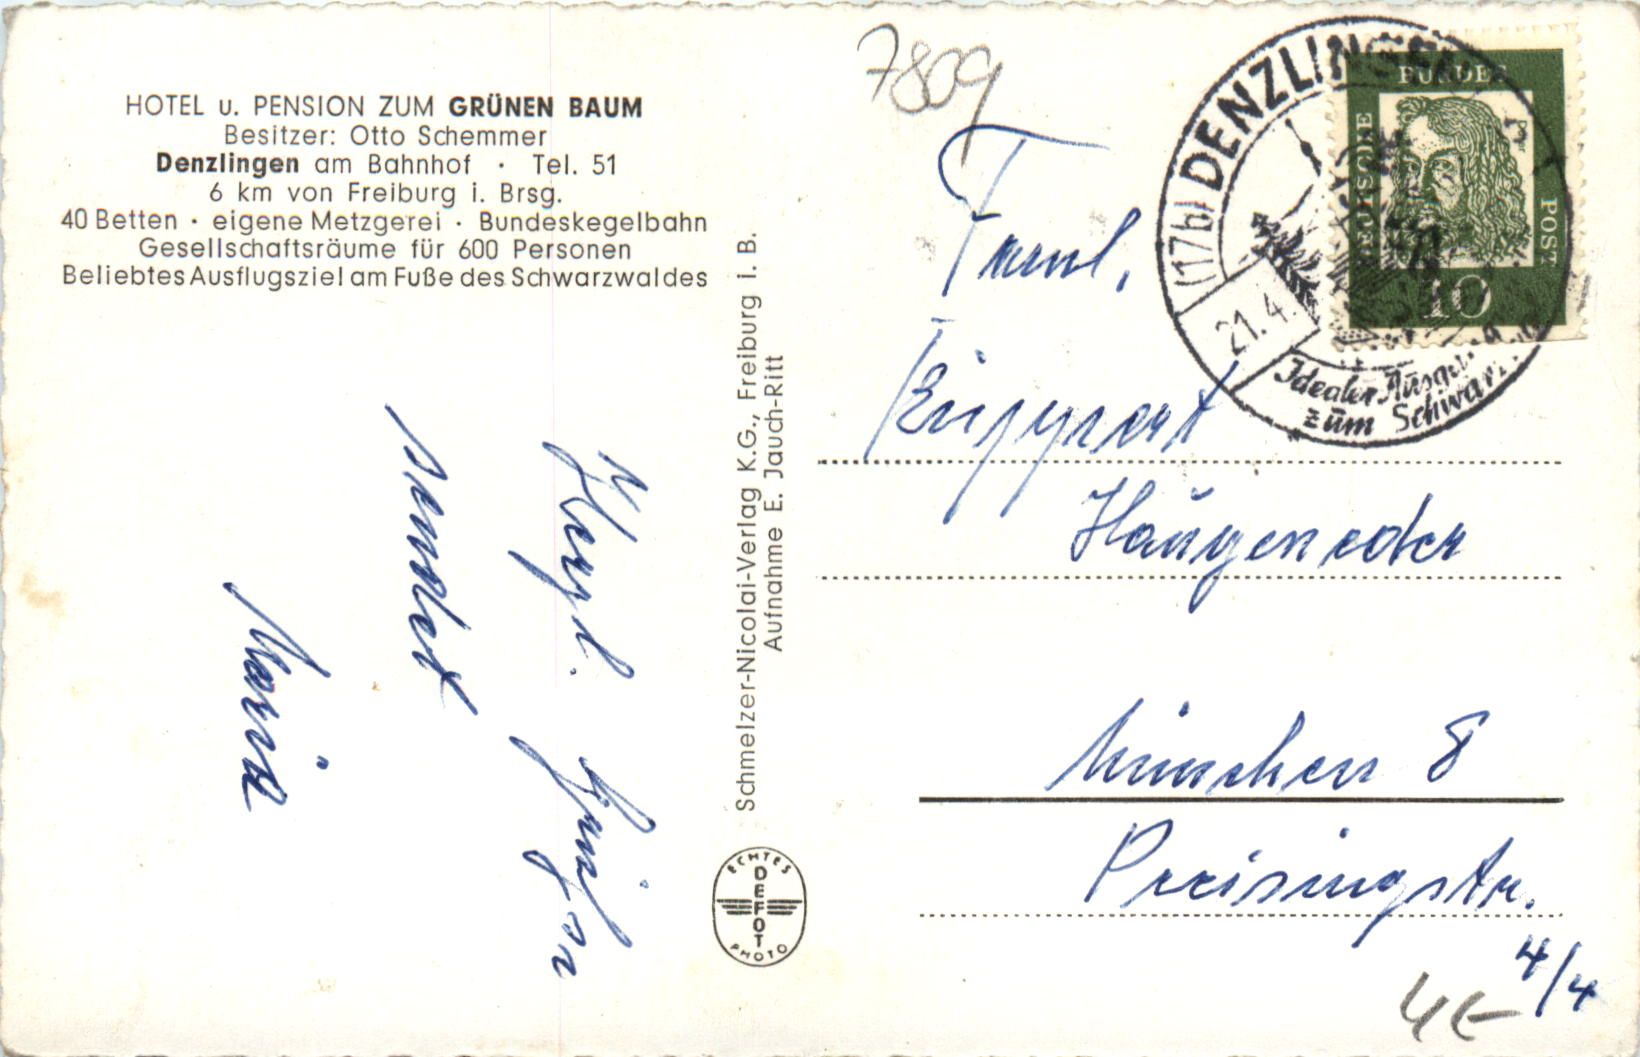 HOTEL u. PENSION ZUM GRÜNEN BAUM
Besitzer: Otto Schemmer
Denzlingen am Bahnhof · Tel. 51
6 km von Freiburg i. Brsg.
40 Betten · eigene Metzgerei · Bundeskegelbahn
Gesellschaftsräume für 600 Personen
Beliebtes Ausflugsziel am Fuße des Schwarzwaldes
Herzl.
sendet
Maria
Schmelzer-Nicolai-Verlag K.G., Freiburg i. B.
Aufnahme E. Jauch-Ritt
ECHTES
DEFOT
PHOTO
7809
(17b) DENZLINGEN
21.4.
Idealer Ausga
zum Schwarz
DEUTSCHE
BUNDES
POST
10
Faml.
Haugeneder
München 8
Preisingstr.
4/4
4€